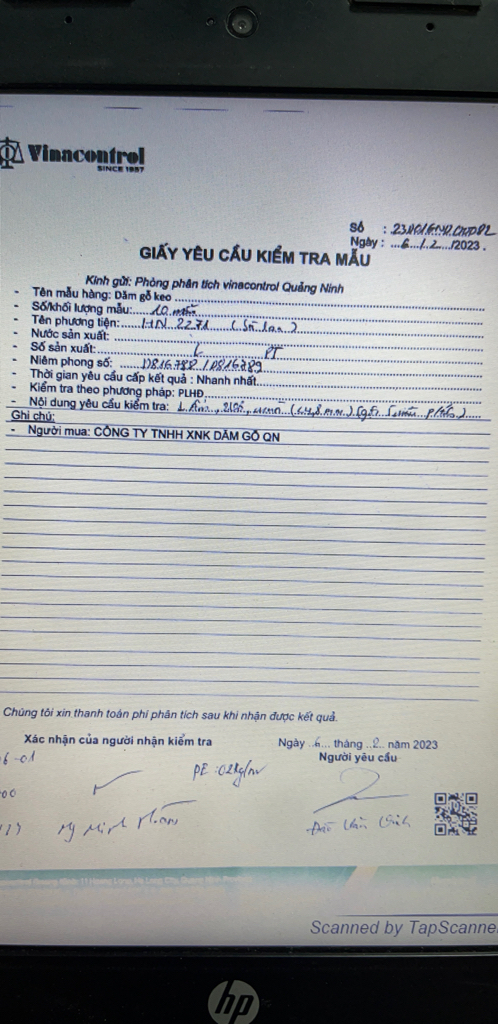 Vinacontrol
SINCE 1957
Số :
Ngày : ...6.../.2.../2023.
GIẤY YÊU CẦU KIỂM TRA MẪU
Kính gửi: Phòng phân tích vinacontrol Quảng Ninh
- Tên mẫu hàng: Dăm gỗ keo
- Số/khối lượng mẫu: 10 mẫu
- Tên phương tiện: HN 2271 (Sà lan)
- Nước sản xuất:
- Số sản xuất:
- Niêm phong số: 0816788 / 0816789
- Thời gian yêu cầu cấp kết quả : Nhanh nhất
- Kiểm tra theo phương pháp: PLHĐ
- Nội dung yêu cầu kiểm tra:
Ghi chú:
- Người mua: CÔNG TY TNHH XNK DĂM GỖ QN
Chúng tôi xin thanh toán phí phân tích sau khi nhận được kết quả.
Xác nhận của người nhận kiểm tra
Ngày ..6... tháng ..2.. năm 2023
Người yêu cầu
6-01
PE :02kg/
Minh
Scanned by TapScanne
hp